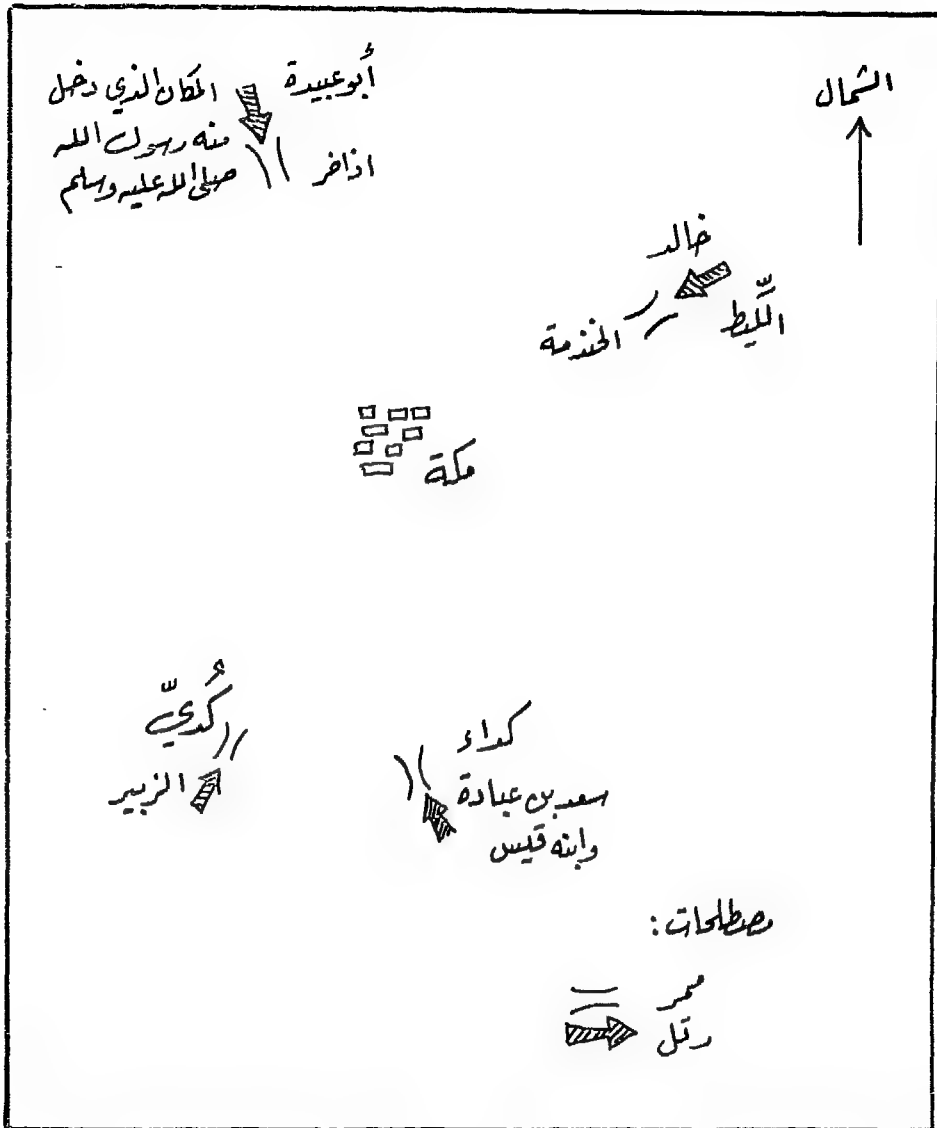 الشمال
أبو عبيدة
المكان الذي دخل
منه رسول الله
صلى الله عليه وسلم
اذاخر
خالد
اللِّيط
الخندمة
مكة
كُديّ
الزبير
كداء
سعد بن عبادة
وابنه قيس
مصطلحات :
ممر
رتل